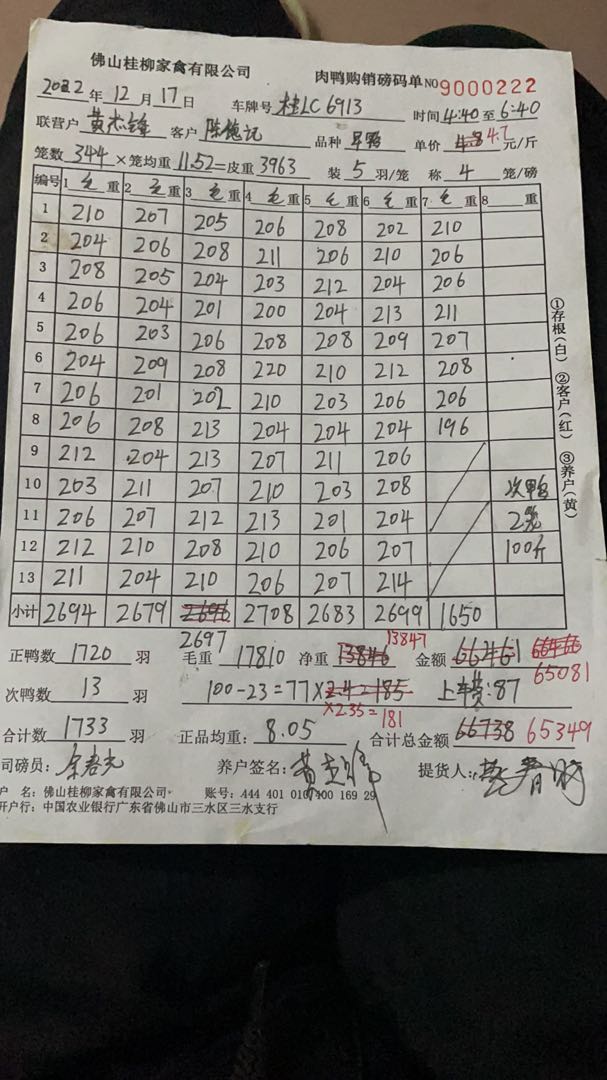 佛山桂柳家禽有限公司 肉鸭购销磅码单 NO 9000222
2022年12月17日 车牌号 桂LC6913 时间4:40至6:40
联营户 客户 品种 早鸭 单价 4.7 元/斤
笼数 344 ×笼均重 11.52=皮重 3963 装 5 羽/笼 称 4 笼/磅
编号 1 毛 重 2 毛 重 3 毛 重 4 毛 重 5 毛 重 6 毛 重 7 毛 重 8 重
1 210 207 205 206 208 202 210
2 204 206 208 211 206 210 206
3 208 205 204 203 212 204 206
4 206 204 201 200 204 213 211
5 206 203 206 208 208 209 207
6 204 209 208 220 210 212 208
7 206 201 202 210 203 206 206
8 206 208 213 204 204 204 196
9 212 204 213 207 211 206
10 203 211 207 210 203 208 次鸭
11 206 207 212 213 201 204
12 212 210 208 210 206 207 100斤
13 211 204 210 206 207 214
小计 2694 2679 2696 2708 2683 2699 1650
2697 13847
正鸭数 1720 羽 毛重 17810 净重 13846 金额 66461 65081
次鸭数 13 羽 100-23=77×2.4=185 上车费:87
×2.35=181
合计数 1733 羽 正品均重: 8.05 合计总金额 66738 65349
司磅员: 养户签名: 提货人:
户 名: 佛山桂柳家禽有限公司 账号: 444 401 010 400 169 29
开户行: 中国农业银行广东省佛山市三水区三水支行
①存根(白) ②客户(红) ③养户(黄)